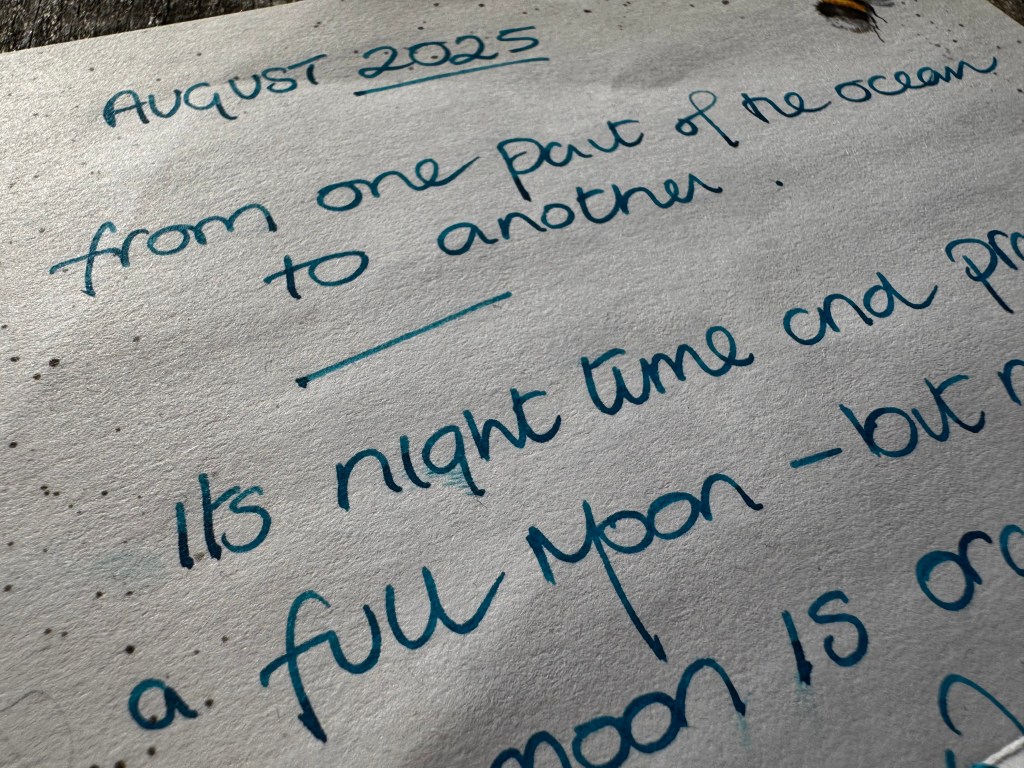 AUGUST 2025
from one part of the ocean
to another.
its night time and
a full Moon - but
moon is